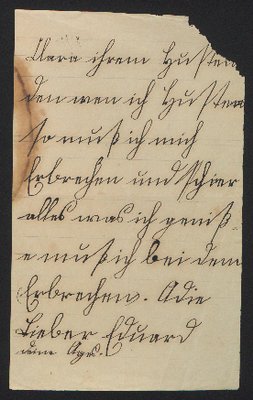 Clara ihrem Husten
den wen ich Husten
so muß ich mich
Erbrechen und schier
alles was ich geniß
e muß ich bei dem
Erbrechen. Adie
Lieber Eduard